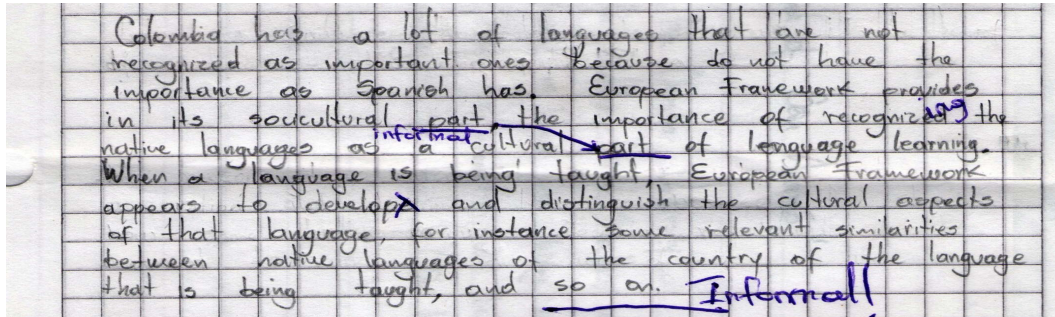 Colombia has a lot of languages that are not
recognized as important ones because do not have the
importance as Spanish has. European Framework provides
in its sociocultural part the importance of recognizing the
informal
native languages as a cultural part of lenguage learning.
When a language is being taught, European Framework
appears to develop and distinguish the cultural aspects
of that language, for instance some relevant similarities
between native languages of the country of the language
that is being taught, and so on. Informal!